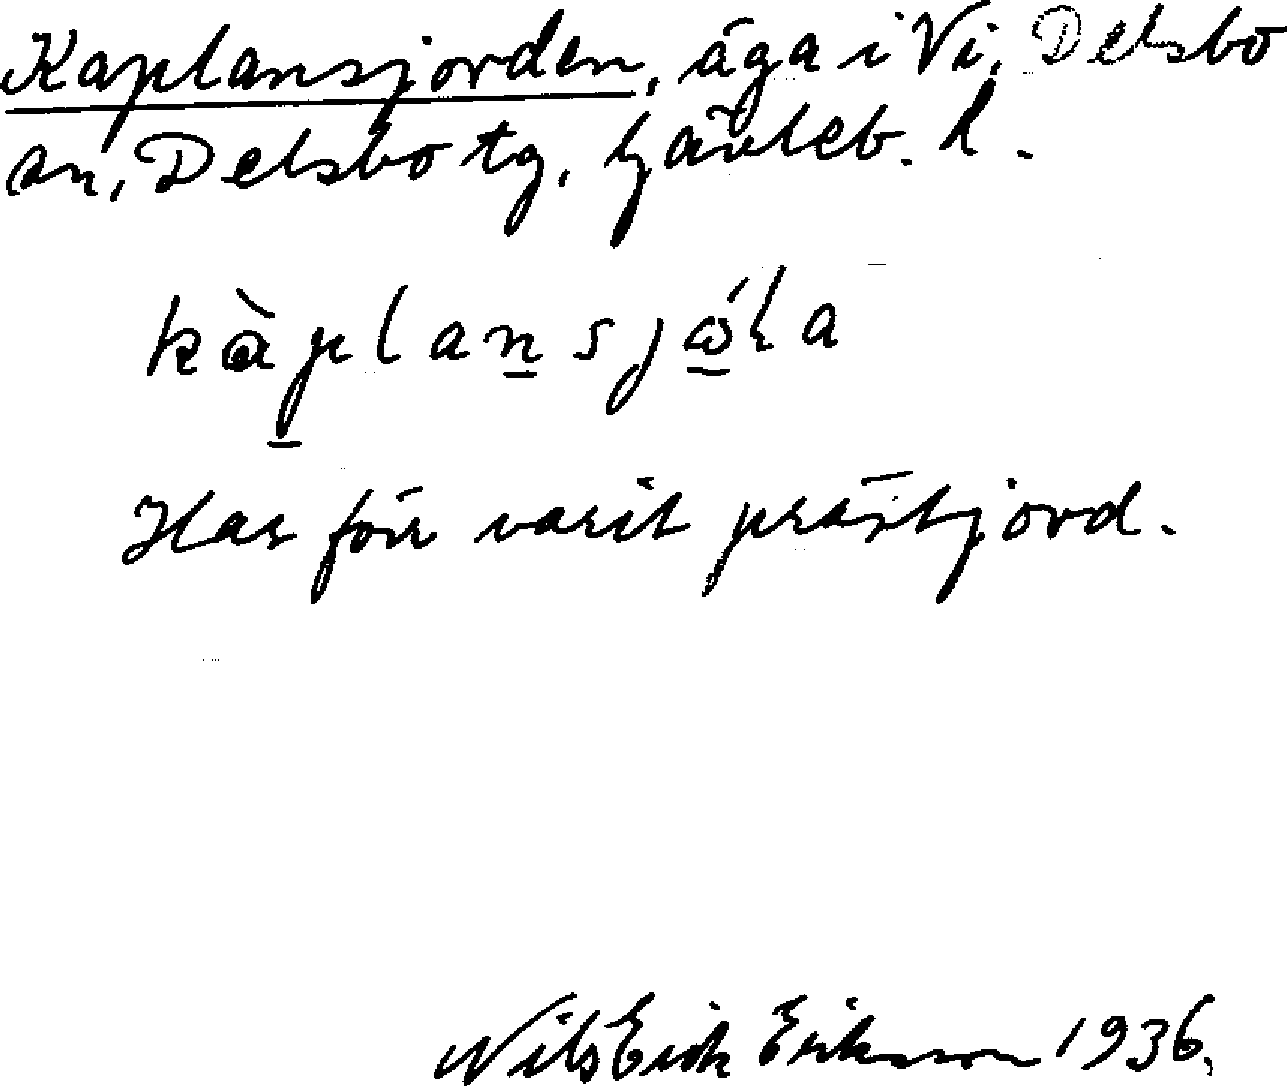 Kaplansjorden, äga i Vi, Delsbo
sn, Delsbo tg, Gävleb. l.
Har förr varit prästjord.
Nils Erik Eriksson 1936.